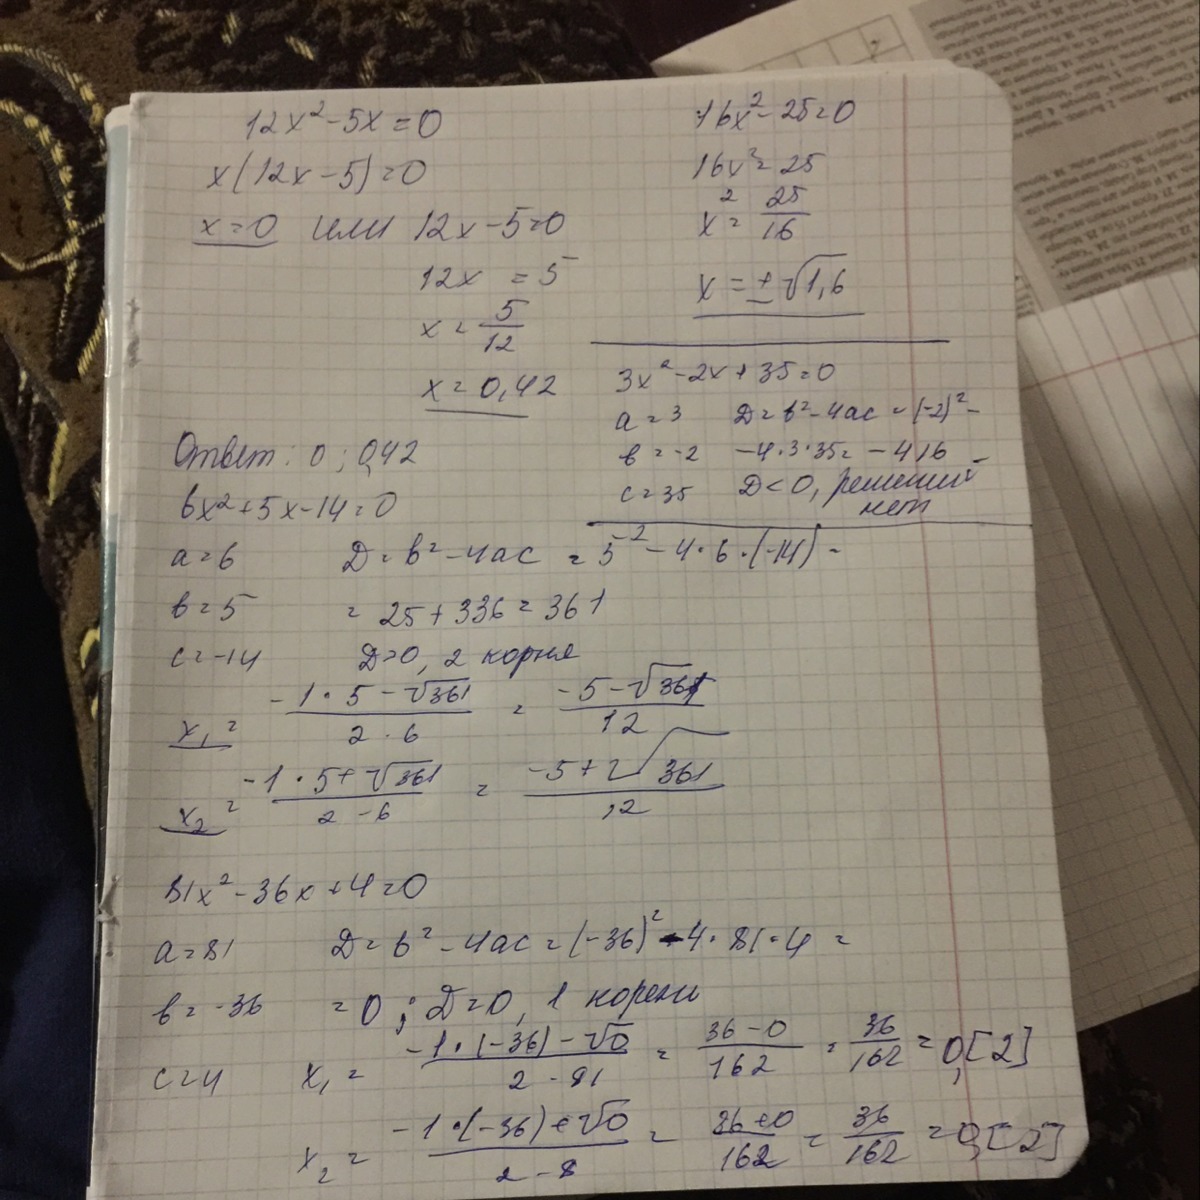 12x²-5x=0
x(12x-5)=0
x=0 или 12x-5=0
12x =5
x=5/12
x=0,42
Ответ: 0; 0,42
16x²-25=0
16x²=25
x²=25/16
x=±√1,6
3x²-2x+35=0
a=3 D=b²-4ac=(-2)²-
b=-2 -4·3·35=-416
c=35 D<0, решений
нет
6x²+5x-14=0
a=6 D=b²-4ac =5²-4·6·(-14)=
b=5 =25+336=361
c=-14 D>0, 2 корня
x₁= -1·5-√361/2·6 = -5-√361/12
x₂= -1·5+√361/2·6 = -5+√361/12
81x²-36x+4=0
a=81 D=b²-4ac=(-36)²-4·81·4=
b=-36 =0; D=0, 1 корень
c=4 x₁= -1·(-36)-√0/2·81 = 36-0/162 = 36/162 =0,[2]
x₂= -1·(-36)+√0/2·8 = 36+0/162 = 36/162 =0,[2]